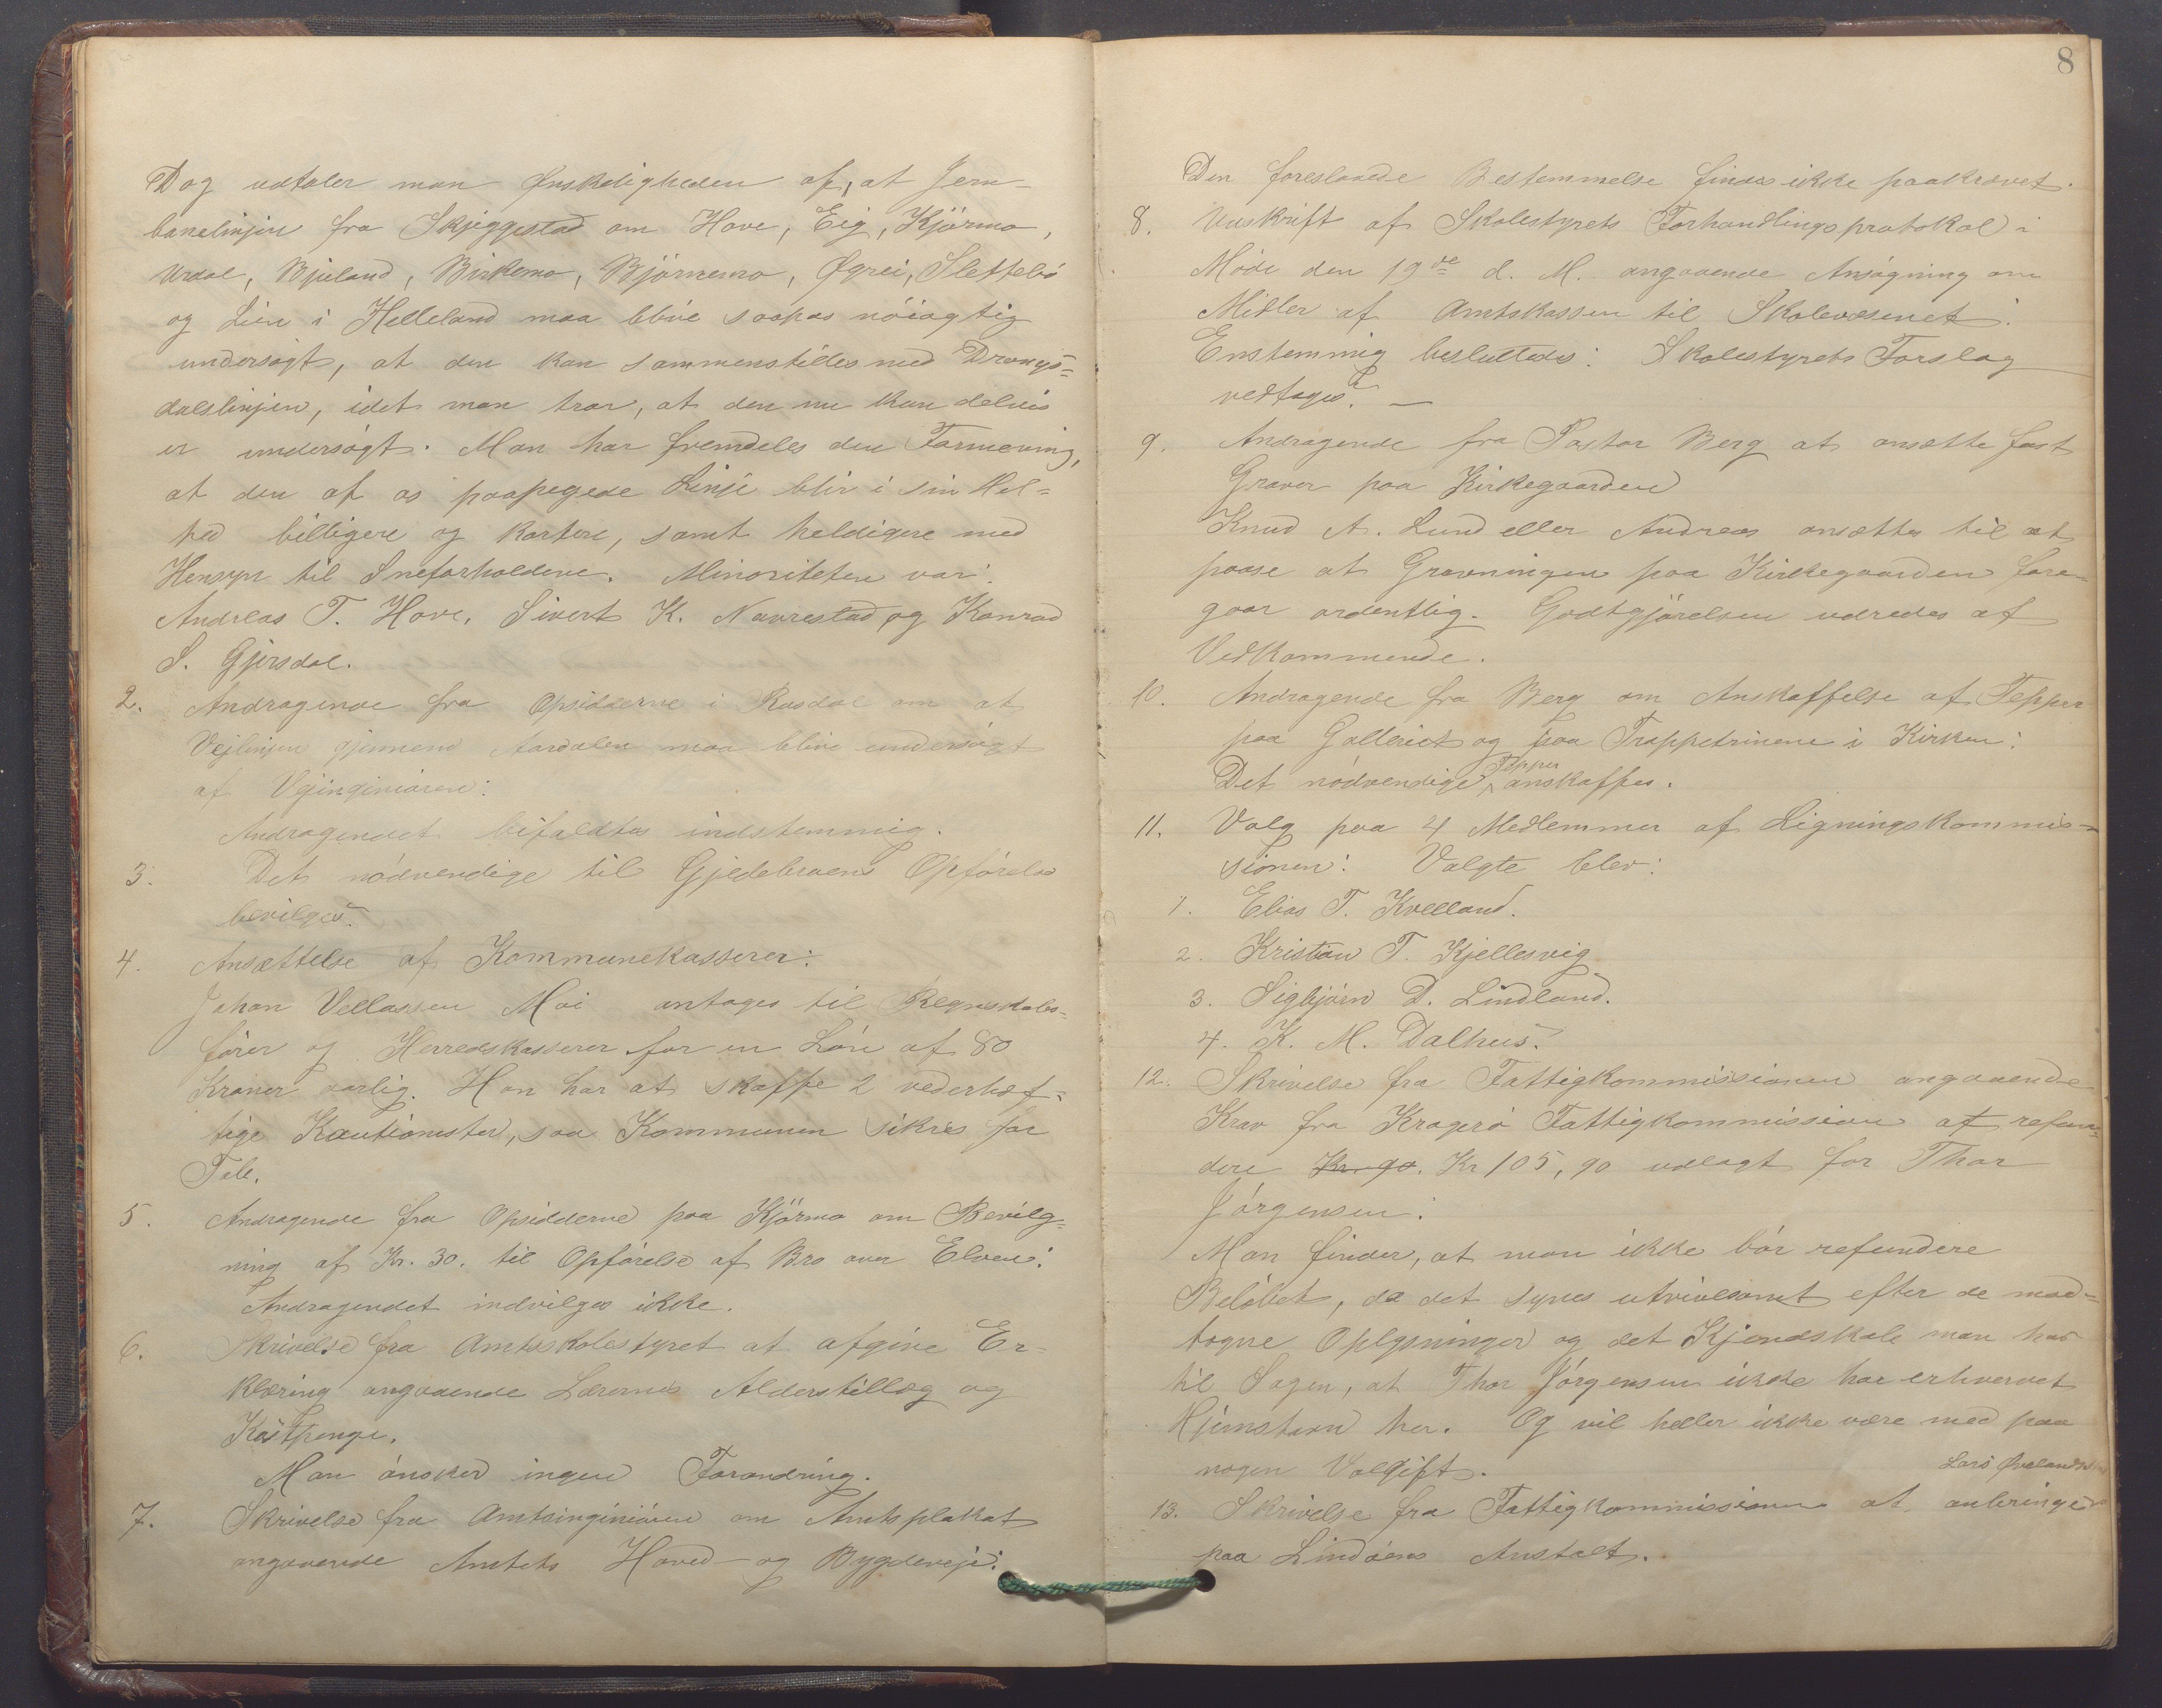 Dog udtaler man Ønskeligheden af, at Jern-
banelinjen fra Skjeggestad om Hove, Eig, Kjörmo,
Urdal, Bjuland, Birkemo, Björnemo, Øgrei, Slettebö
og Lien i Helleland maa blive saapas nöiagtig
undersögt, at den kan sammenstilles med Drangs=
dalslinjen, idet man tror, at den nu kun delvis
er undersögt. Man har fremdeles den Formening,
at den af os paapegede Linje blir i sin Hel=
hed billigere og kortere, samt heldigere med
Hensyn til Sneforholdene. Minoriteten var:
Andreas T. Hove, Sivert K. Navrestad og Konrad
S. Gjersdal.
2. Andragende fra Opsidderne i Rusdal om at
Vejlinjen gjennem Aardalen maa blive undersögt
af Vejingeniören:
Andragendet bifaldtes indstemmig.
3. Det nödvendige til Gjedebroens Opförelse
bevilges.
4. Ansættelse af Kommunekasserer:
Johan Vellassen Moi antages til Regnskabs=
förer og Herredskasserer for en Lön af 80
Kroner aarlig. Han har at skaffe 2 vederhæf=
tige Kautionister, saa Kommunen sikres for
Tab.
5. Andragende fra Opsidderne paa Kjörmo om Bevilg=
ning af Kr. 30. til Opförelse af Bro over Elven:
Andragendet indvilges ikke.
6. Skrivelse fra Amtsskolestyret at afgive Er=
klæring angaaende Lærernes Alderstillæg og
Kostpenge.
Man önsker ingen Forandring.
7. Skrivelse fra Amtsingeniören om Amtsplakat
angaaende Amtets Hoved- og Bygdeveje:
8
Den foreslaaede Bestemmelse findes ikke paakrævet.
8. Udskrift af Skolestyrets Forhandlingsprotokol i
Möde den 19de d. M. angaaende Ansögning om
Midler af Amtskassen til Skolevæsenet:
Enstemmig besluttedes: Skolestyrets Forslag
vedtages. —
9. Andragende fra Pastor Berg at ansætte fast
Graver paa Kirkegaarden
Knud A. Lund eller Andreas ansættes til at
paase at Gravningen paa Kirkegaarden fore=
gaar ordentlig. Godtgjörelsen udredes af
Vedkommende.
10. Andragende fra Berg om Anskaffelse af Tepper
paa Galleriet og paa Trappetrinene i Kirken:
Det nödvendige Tepper anskaffes.
11. Valg paa 4 Medlemmer af Ligningskommis=
sionen: Valgte blev:
1. Elias T. Kvelland.
2. Kristian T. Kjellesvig
3. Sigbjörn D. Lindland.
4. K. M. Dalhus.
12. Skrivelse fra Fattigkommissionen angaaende
Krav fra Kragerö Fattigkommission at refun=
dere Kr. 90. Kr 105,90 udlagt for Thor
Jörgensen:
Man finder, at man ikke bör refundere
Belöbet, da det synes utvivlsomt efter de mod=
tagne Oplysninger og det Kjendskab man har
til Sagen, at Thor Jörgensen ikke har erhvervet
Hjemstavn her. Og vil heller ikke være med paa
nogen Voldgift.
Lars
13. Skrivelse fra Fattigkommissionen at anbringe
paa Lindöens Anstalt.